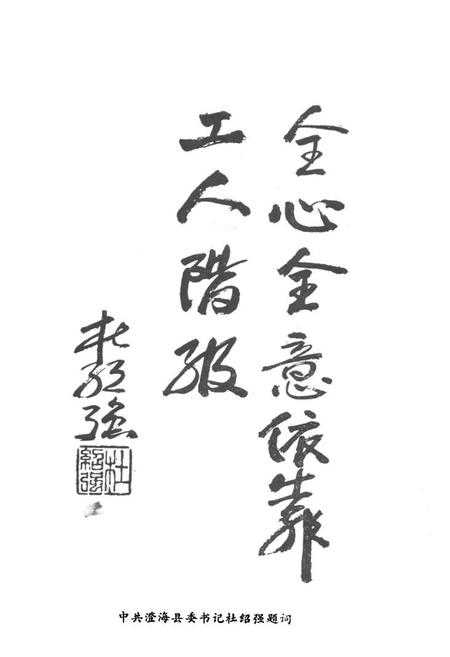 全心全意依靠
工人階级
杜绍强
杜紹强
中共澄海县委书记杜绍强题词